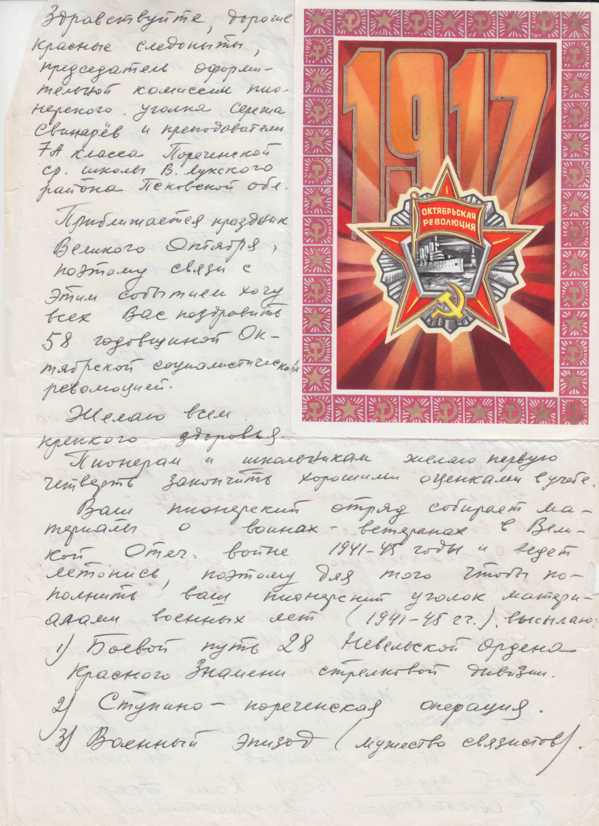 Здравствуйте, дорогие
красные следопыты,
председатель оформи-
тельной комиссии пио-
нерского уголка Сережа
Свинарёв и преподаватели
7А класса Пореченской
ср. школы В. Лукского
района Псковской обл.
Приближается праздник
Великого Октября,
поэтому связи с
этим событием хочу
всех Вас поздравить
58 годовщиной Ок-
тябрской социалистической
революцией.
Желаю всем
крепкого здоровья.
Пионерам и школьникам желаю первую
четверть закончить хорошими оценками в учебе.
Ваш пионерский отряд собирает ма-
териалы о воинах-ветеранах в Вели-
кой Отеч. войне 1941-45 годы и ведет
летопись, поэтому для того чтобы по-
полнить ваш пионерский уголок матери-
алами военных лет (1941-45 гг.) высылаю:
1) Боевой путь 28 Невельской Ордена
Красного Знамени стрелковой дивизии.
2) Ступино-пореченская операция.
3) Военный эпизод (мужество связистов).
1917
ОКТЯБРЬСКАЯ
РЕВОЛЮЦИЯ